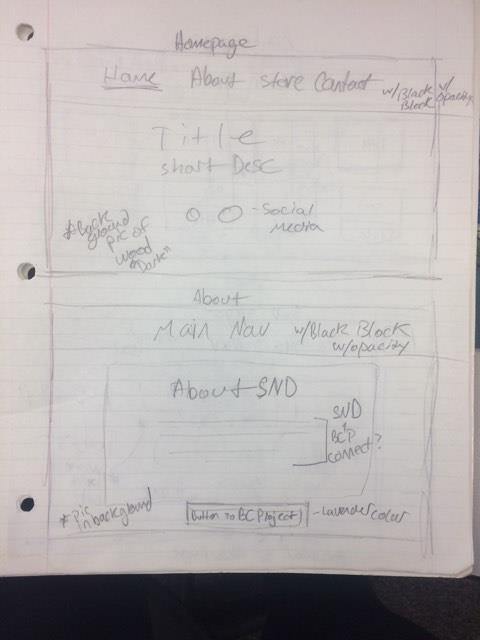 Homepage
Home About store Contact
w/Black Block w/opacity
Title
short Desc
- Social Media
*Back ground pic of wood "Dark"
About
Main Nav w/Black Block
w/opacity
About SND
SND
BCP
connect?
*pic in background
Button to BC Project - Lavender color